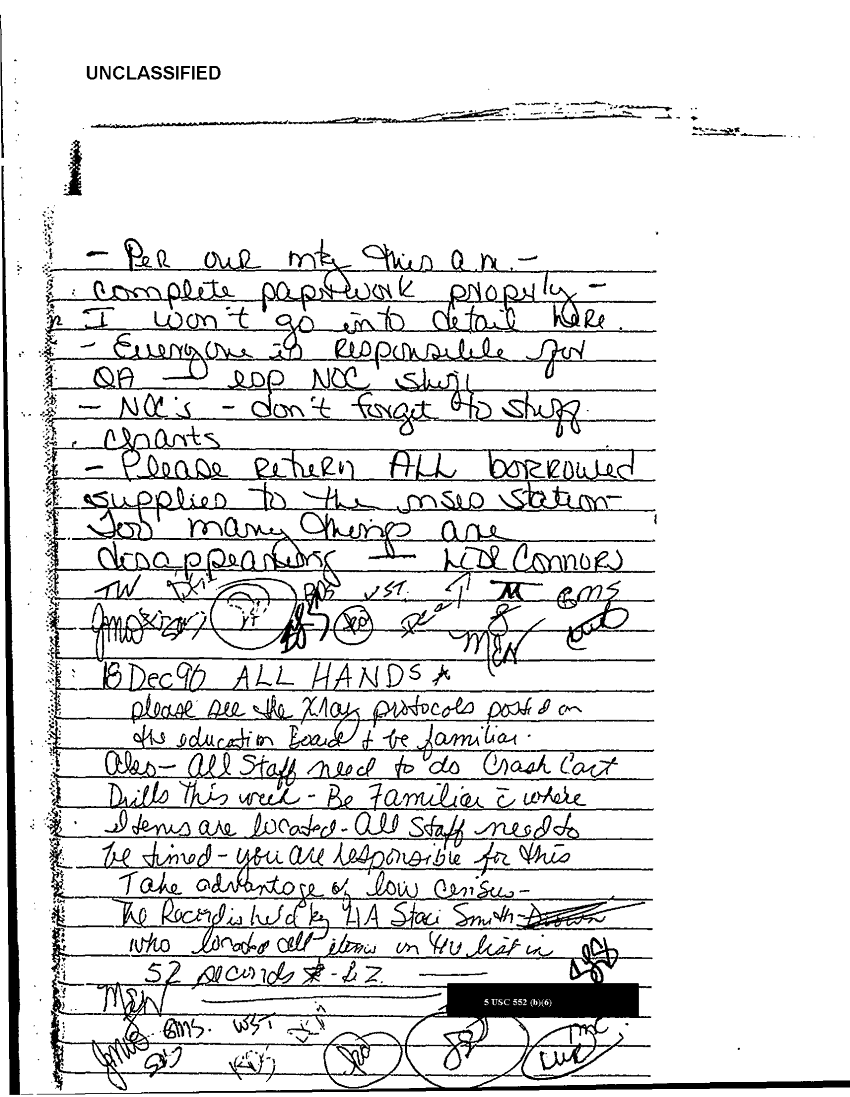 UNCLASSIFIED
- Per our mtg this a.m. -
complete paperwork properly -
I won't go into detail here.
- Everyone is responsible for
QA — esp NOC shift
- NOC's - don't forget to stuff
charts
- Please return ALL borrowed
supplies to the station -
Too many things are
disappearing —
TW BMS VST. T M GMS
JMW
MEN
18 Dec 96 ALL HANDS *
please see the Xray protocols posted on
the education Board & be familiar.
Also - All Staff need to do Crash Cart
Drills This week - Be Familiar c̄ where
Items are located - All Staff need to
be timed - you are responsible for this
Take advantage of low census -
The Record is held by HA Staci Smith-
who located all items on the list in
52 seconds
5 USC 552 (b)(6)
MEN
GMS. WST